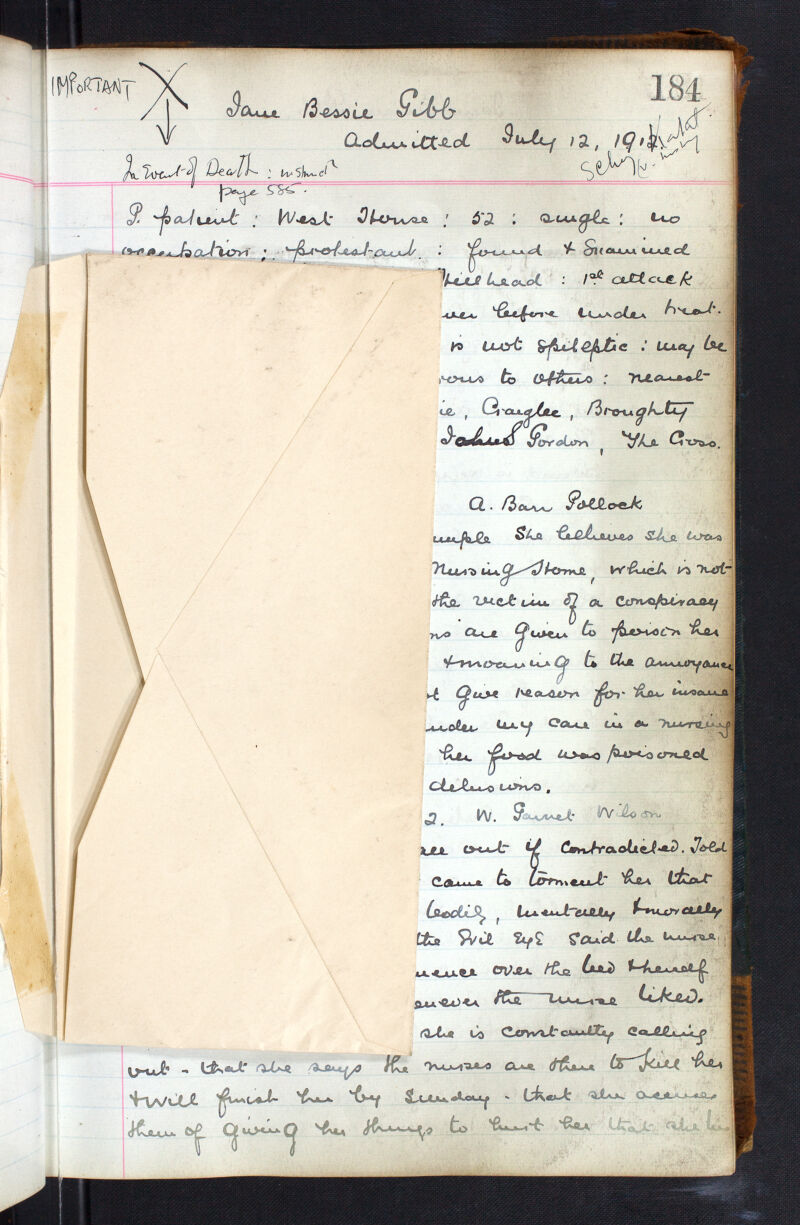 IMPORTANT
184
Jane Bessie Gibb
Admitted July 12, 1912
In Event of Death :
page 585.
P. patient : West House : 52 : single : no
occupation : protestant : found & Examined
Hillhead : 1st attack
before under treat-
is not Epileptic : may be
to others : nearest
Craiglee, Broughty
Gordon, The Cross.
A. Barr Pollock
She believes she was
Nursing Home, which is not
the victim of a conspiracy
are given to poison her
& moaning to the annoyance
give reason for her insane
my care in a nursing
her food was poisoned
delusions.
2. W. Garnet Wilson
out if contradicted. Told
came to torment her that
bodily, mentally & morally
the Evil EyE said the nurse
over the bed & herself
the nurse liked.
she is constantly calling
out - that she says the nurses are there to kill her
& will finish her by Sunday - that she accuses
them of giving her things to hurt her that she